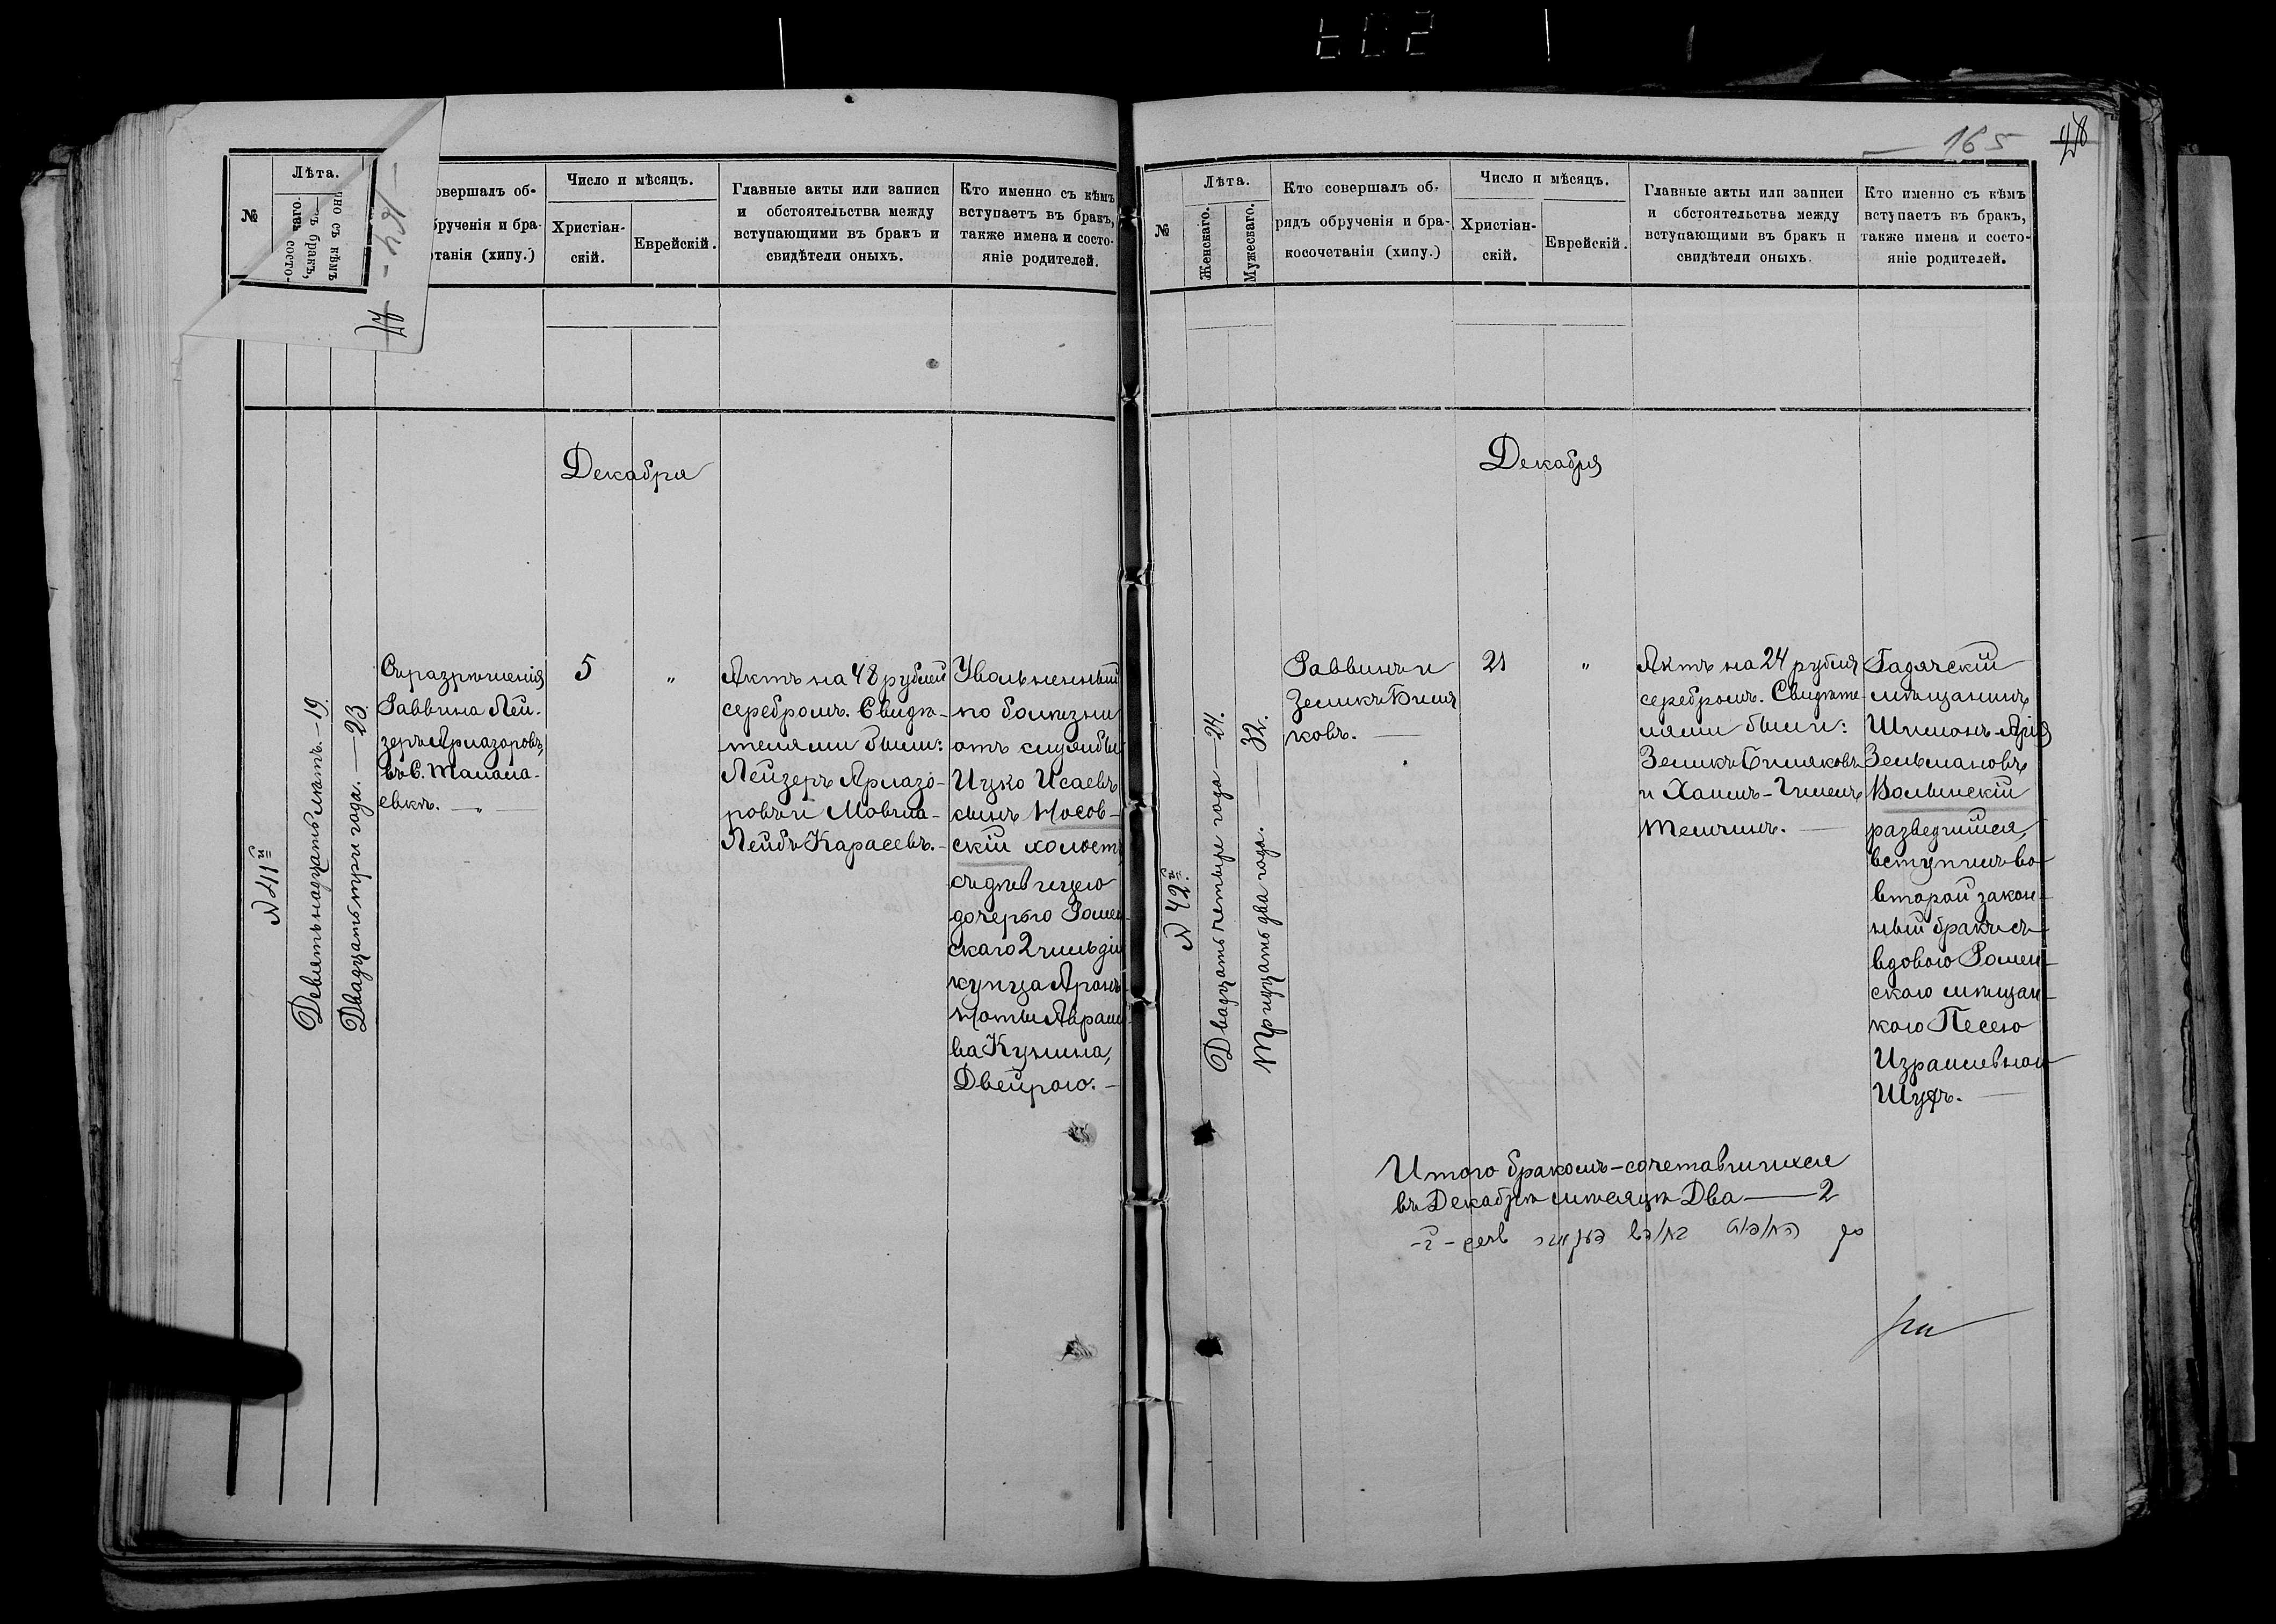 165
48
№
Лѣта.
чно съ кѣмъ
ъ бракъ,
состо-
наго.
— 164 —
47
овершалъ об-
брученія и бра-
отанія (хипу.)
Число и мѣсяцъ.
Христіан-
скій.
Еврейскій.
Главные акты или записи
и обстоятельства между
вступающими въ бракъ и
свидѣтели оныхъ.
Кто именно съ кѣмъ
вступаетъ въ бракъ,
также имена и состо-
яніе родителей.
Декабря
№ 41й
Девятьнадцать лѣтъ. — 19.
Двадцать три года. — 23.
Съ разрѣшенія
Раввина Лей-
зеръ Арлазоровъ
въ С. Талала-
евкѣ. —„—
5
„
Актъ на 48 рублей
серебромъ. Свидѣ-
телями были:
Лейзеръ Арлазо-
ровъ и Мовша-
Лейбъ Карасевъ. —
Увольненный
по болѣзни
отъ службы
Ицко Исаевъ
сынъ Носов-
скій холостъ
съ дѣвицею
дочерью Ромен-
скаго 2 гильдіи
купца Аронъ-
Ноты Абрамо-
ва Кунина,
Двейрою. —
№
Лѣта.
Женскаго.
Мужескаго.
Кто совершалъ об-
рядъ обрученія и бра-
косочетанія (хипу.)
Число и мѣсяцъ.
Христіан-
скій.
Еврейскій.
Главные акты или записи
и обстоятельства между
вступающими въ бракъ и
свидѣтели оныхъ.
Кто именно съ кѣмъ
вступаетъ въ бракъ,
также имена и состо-
яніе родителей.
Декабря
№ 42й.
Двадцать четыре года — 24.
Тридцать два года. — 32.
Раввинъ и
Зеликъ Биля
ковъ. —
21
„
Актъ на 24 рубля
серебромъ. Свидѣте-
лями были:
Зеликъ Биляковъ
и Хаимъ-Гилелъ
Телтинъ. —
Гадячскій
мѣщанинъ
Шимонъ-Арія
Зельмановъ
Волынскій
разведшійся,
вступилъ во
второй закон-
ный бракъ съ
вдовою Ромен-
скою мѣщан-
кою Песею
Израилевною
Шуфъ. —
Итого бракомъ-сочетавшихся
въ Декабрѣ мѣсяцѣ Два — 2